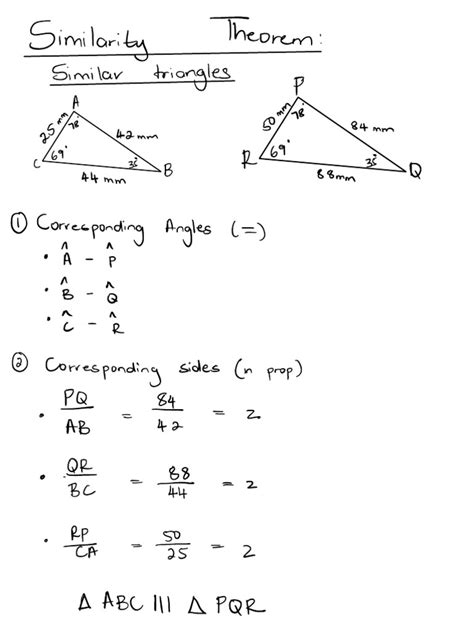 Similarity Theorem:
Similar triangles
A
25 mm
78°
42 mm
C
69°
33°
B
44 mm
P
50 mm
78°
84 mm
R
69°
33°
Q
88mm
① Corresponding Angles (=)
• Â - P̂
• B̂ - Q̂
• Ĉ - R̂
② Corresponding sides (n prop)
• PQ/AB = 84/42 = 2
• QR/BC = 88/44 = 2
• RP/CA = 50/25 = 2
Δ ABC ||| Δ PQR